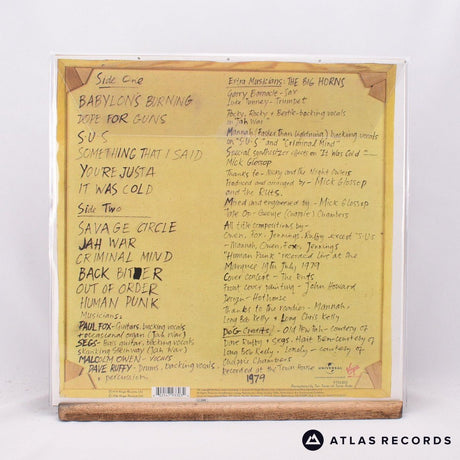 Side One
BABYLON'S BURNING
DOPE FOR GUNS
S·U·S
SOMETHING THAT I SAID
YOU'RE JUST A
IT WAS COLD
Side Two
SAVAGE CIRCLE
JAH WAR
CRIMINAL MIND
BACK BITER
OUT OF ORDER
HUMAN PUNK
Musicians:
PAUL FOX - Guitars, backing vocals
+ occasional organ (Jah War)
SEGS - Bass guitar, backing vocals
Steinway (Jah War)
MALCOLM OWEN - vocals
DAVE RUFFY - Drums, backing vocals
+ percussion
Extra Musicians: THE BIG HORNS
Gary Barnacle - Sax
Luke Tunney - Trumpet
Rocky, Rocky & Bertie - backing vocals
on "Jah War"
Mannah (Faster than lightning) backing vocals
on "S·U·S" and "Criminal Mind"
Special synthesizer effects on "It Was Cold" -
Mick Glossop
Thanks to - Nicky and the Night Owlers
Produced and arranged by - Mick Glossop
and the Ruts.
Mixed and engineered by - Mick Glossop
Tape Op - George (Chappie) Chambers
All title compositions by -
Owen, Fox, Jennings, Ruffy except "S·U·S"
- Mannah, Owen, Fox, Jennings
"Human Punk" recorded live at the
Marquee 19th July 1979
Cover Concept - The Ruts
Front cover painting - John Howard
Design - Hothouse
Thanks to the roadies - Mannah,
Long Bob Kelly & Long Chris Kelly
DOG Credits: - courtesy of
Dave Ruffy - Segs. - courtesy of
Long Bob Kelly - Lonely - courtesy of
Chappie Chambers
recorded at the Town House
1979
UNIVERSAL
Virgin
ATLAS RECORDS